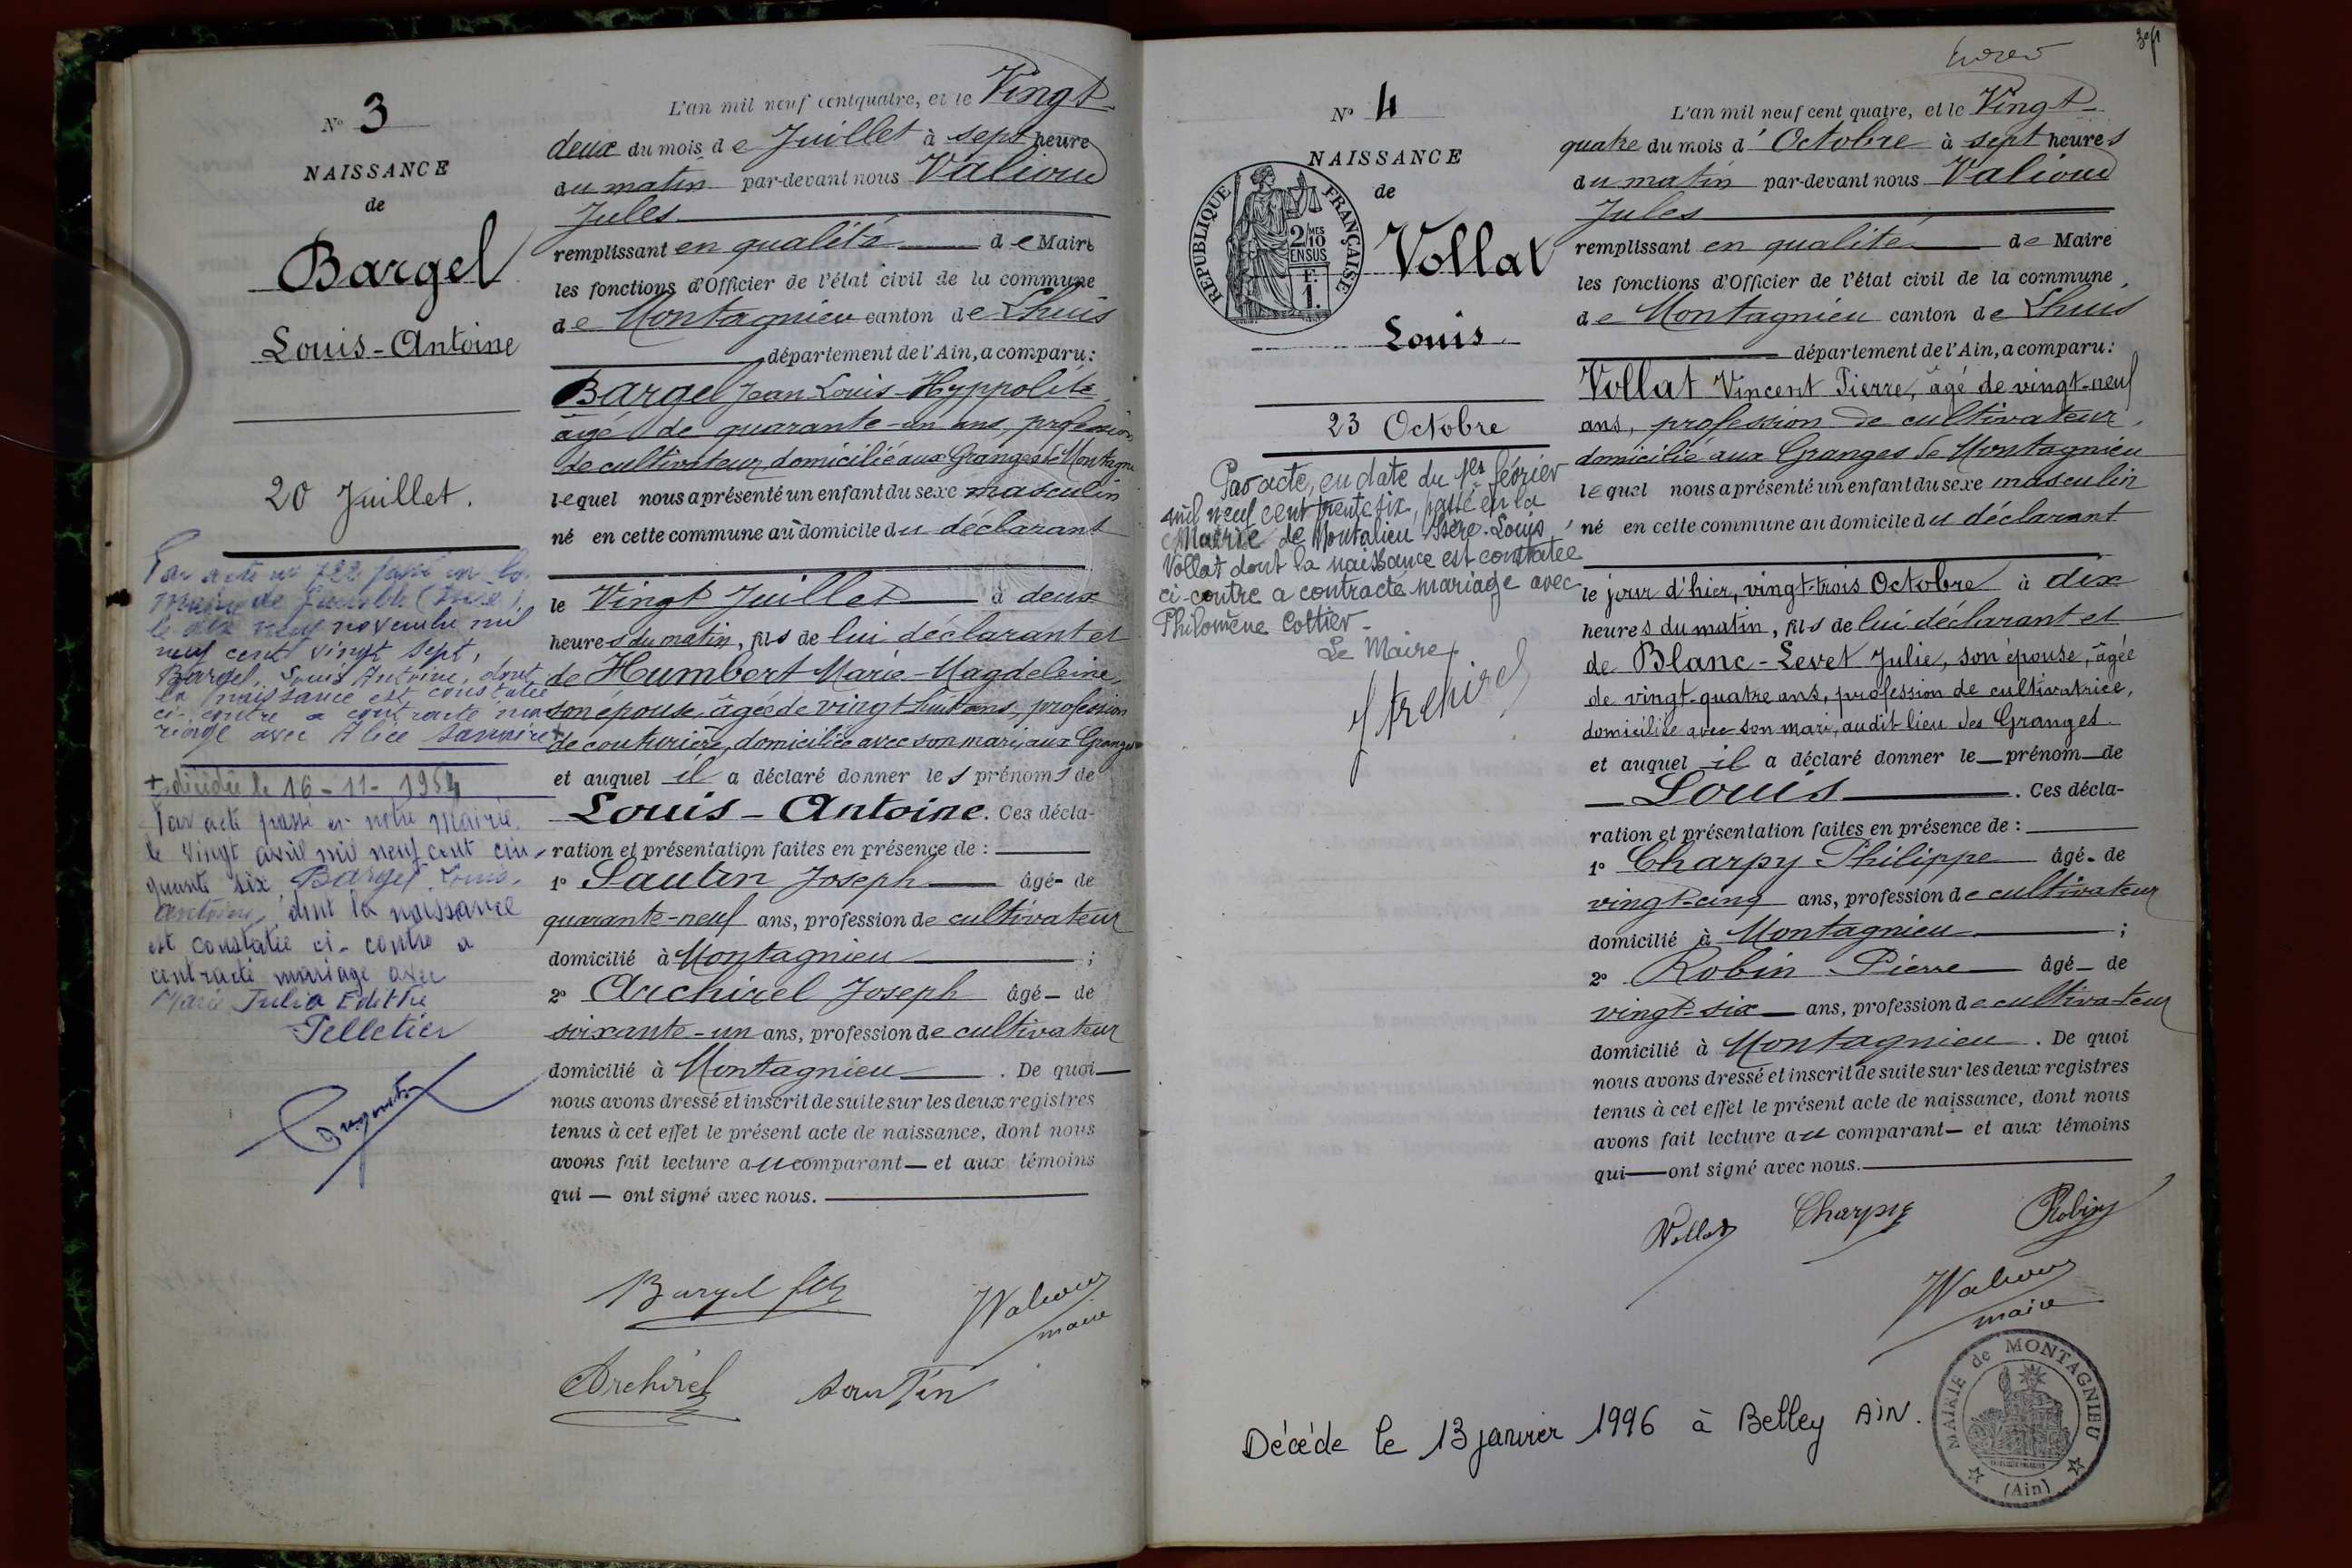 N° 3
NAISSANCE
de
Bargel
Louis-Antoine
20 Juillet.
Par acte n° 722 passé en la
Mairie de Grenoble (Isère),
le dix neuf novembre mil
neuf cent vingt sept,
Bargel, Louis Antoine, dont
la naissance est constatée
ci-contre a contracté ma-
riage avec Alice
+ décédée le 16-11-1954
Par acte passé en notre Mairie
le vingt avril mil neuf cent cin-
quante six Bargel Louis-
Antoine, dont la naissance
est constatée ci-contre a
contracté mariage avec
Marie Julia Edithe
Pelletier
L'an mil neuf cent quatre, et le Vingt-
deux du mois de Juillet à sept heure
du matin par-devant nous Valioud
Jules
remplissant en qualité de Maire
les fonctions d'Officier de l'état civil de la commune
de Montagnieu canton de Lhuis
département de l'Ain, a comparu:
Bargel Jean-Louis-Hyppolite
âgé de quarante-un ans, profession
de cultivateur, domicilié aux Granges de Montagnieu
lequel nous a présenté un enfant du sexe masculin
né en cette commune au domicile du déclarant
le Vingt Juillet à deux
heures du matin, fils de lui déclarant et
de Humbert Marie-Magdeleine,
son épouse, âgée de vingt huit ans, profession
de couturière, domiciliée avec son mari, aux Granges
et auquel il a déclaré donner les prénoms de
Louis-Antoine. Ces décla-
ration et présentation faites en présence de :
1° Sautin Joseph âgé de
quarante-neuf ans, profession de cultivateur
domicilié à Montagnieu ;
2° Archirel Joseph âgé de
soixante-un ans, profession de cultivateur
domicilié à Montagnieu . De quoi
nous avons dressé et inscrit de suite sur les deux registres
tenus à cet effet le présent acte de naissance, dont nous
avons fait lecture au comparant et aux témoins
qui ont signé avec nous.
Bargel fils
JValioud
maire
Archirel
Sautin
N° 4
NAISSANCE
de
REPUBLIQUE FRANÇAISE
2/10 MES
EN SUS
F.
1.
Vollat
Louis
23 Octobre
Par acte, en date du 1er février
mil neuf cent trente six, passé en la
Mairie de Montalieu Isère. Louis
Vollat dont la naissance est constatée
ci-contre a contracté mariage avec
Philomène Cottier
Le Maire,
L'an mil neuf cent quatre, et le Vingt-
quatre du mois d'Octobre à sept heures
du matin par-devant nous Valioud
Jules
remplissant en qualité de Maire
les fonctions d'Officier de l'état civil de la commune
de Montagnieu canton de Lhuis
département de l'Ain, a comparu:
Vollat Vincent Pierre, âgé de vingt-neuf
ans, profession de cultivateur,
domicilié aux Granges de Montagnieu
lequel nous a présenté un enfant du sexe masculin
né en cette commune au domicile du déclarant
le jour d'hier, vingt-trois Octobre à dix
heures du matin, fils de lui déclarant et
de Blanc-Levet Julie, son épouse, âgée
de vingt-quatre ans, profession de cultivatrice,
domiciliée avec son mari, audit lieu des Granges.
et auquel il a déclaré donner le prénom de
Louis . Ces décla-
ration et présentation faites en présence de :
1° Charpy Philippe âgé de
vingt-cinq ans, profession de cultivateur
domicilié à Montagnieu ;
2° Robin Pierre âgé de
vingt-six ans, profession de cultivateur
domicilié à Montagnieu . De quoi
nous avons dressé et inscrit de suite sur les deux registres
tenus à cet effet le présent acte de naissance, dont nous
avons fait lecture au comparant et aux témoins
qui ont signé avec nous.
Vollat Charpy Robin
JValioud
maire
Décéde le 13 janvier 1996 à Belley AIN.
MAIRIE de MONTAGNIEU
(Ain)